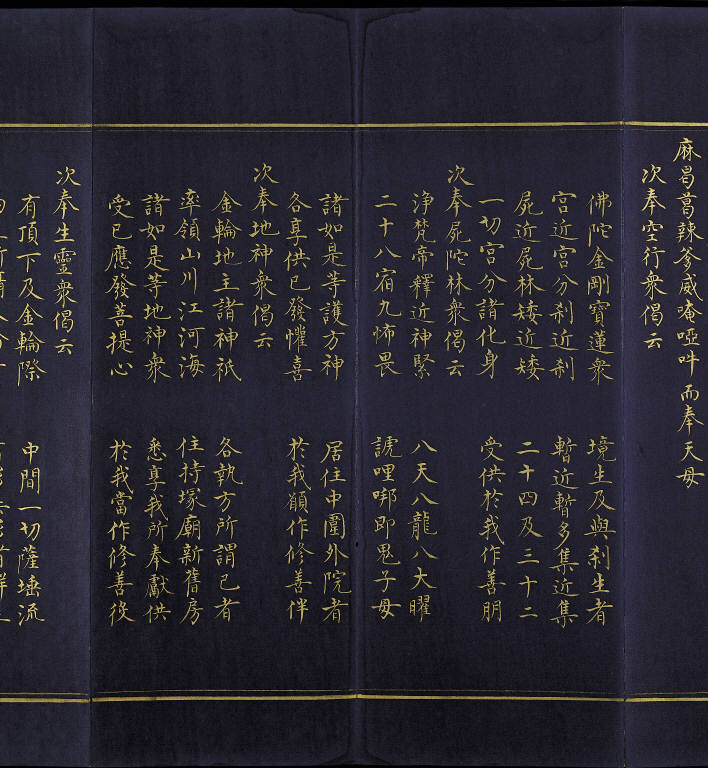 麻曷葛辣爹威唵啞吽而奉天母
次奉空行衆偈云
佛陀金剛寶蓮衆 境生及與刹生者
宫近宫分刹近刹 暫近暫多集近集
屍近屍林矮近矮 二十四及三十二
一切宫分諸化身 受供於我作善朋
次奉屍陀林衆偈云
淨梵帝釋近神緊 八天八龍八大曜
二十八宿九怖畏 謼哩啷即鬼子母
諸如是等護方神 居住中圍外院者
各享供已發懽喜 於我願作修善伴
次奉地神衆偈云
金輪地主諸神祇 各執方所謂已者
率領山川江河海 住持塚廟新舊房
諸如是等地神衆 悉享我所奉獻供
受已應發菩提心 於我當作修善役
次奉生靈衆偈云
有頂下及金輪際 中間一切薩埵流